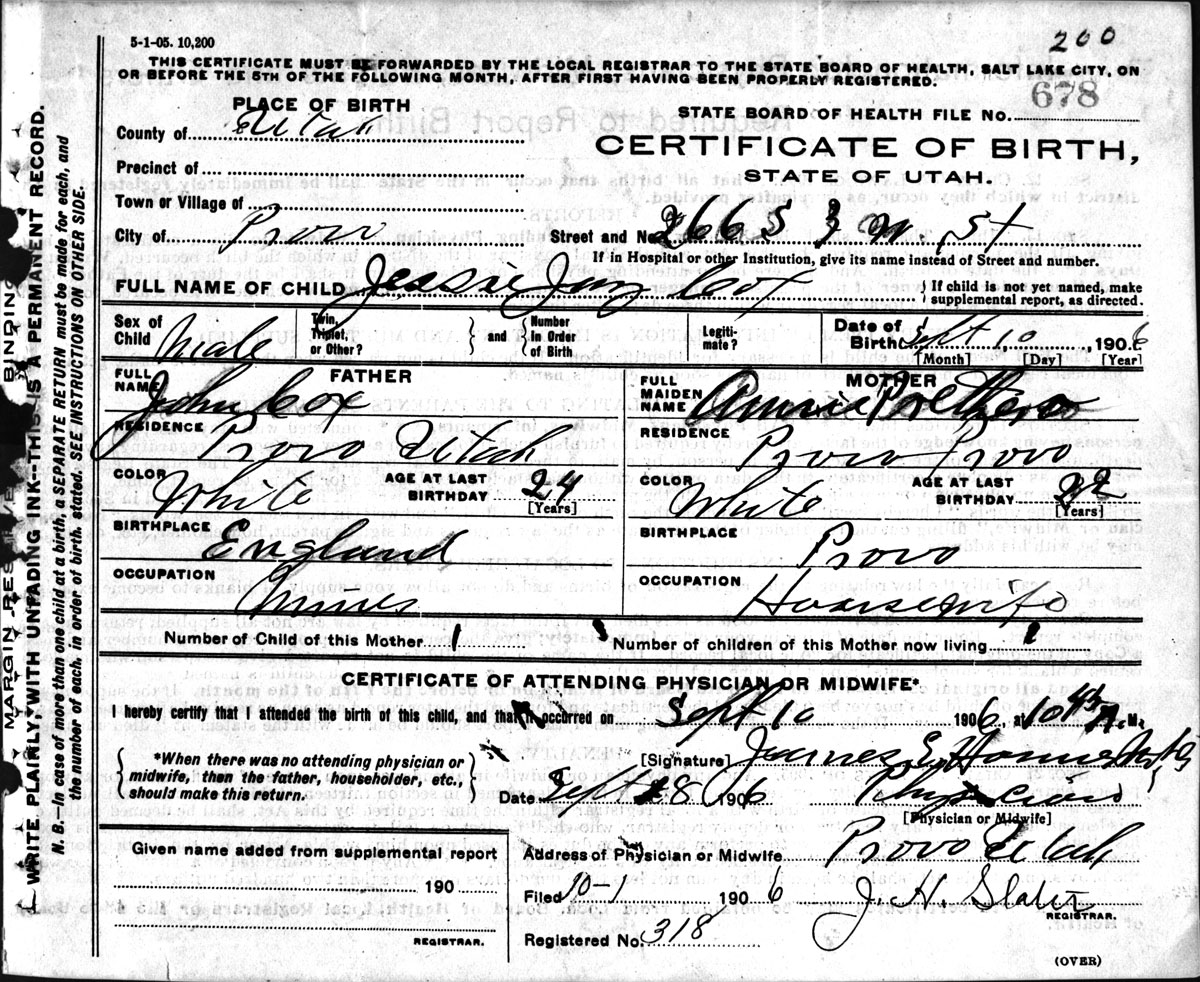 5-1-05. 10,200
200
THIS CERTIFICATE MUST BE FORWARDED BY THE LOCAL REGISTRAR TO THE STATE BOARD OF HEALTH, SALT LAKE CITY, ON
OR BEFORE THE 5TH OF THE FOLLOWING MONTH, AFTER FIRST HAVING BEEN PROPERLY REGISTERED.
678
PLACE OF BIRTH
STATE BOARD OF HEALTH FILE NO.
County of Utah
CERTIFICATE OF BIRTH,
STATE OF UTAH.
Precinct of
Town or Village of
City of Provo Street and No. 266 S 3 W. St
If in Hospital or other Institution, give its name instead of Street and number.
FULL NAME OF CHILD Jessie Jay Cox { If child is not yet named, make
supplemental report, as directed.
Sex of Child Male
Twin, Triplet, or Other? } and { Number In Order of Birth
Legiti- mate?
Date of Birth Sept 10, 1906
[Month] [Day] [Year]
FATHER
FULL NAME John Cox
MOTHER
FULL MAIDEN NAME Annie
RESIDENCE Provo Utah
RESIDENCE Provo Provo
COLOR White AGE AT LAST BIRTHDAY 24 [Years]
COLOR White AGE AT LAST BIRTHDAY 22 [Years]
BIRTHPLACE England
BIRTHPLACE Provo
OCCUPATION Miner
OCCUPATION Housewife
Number of Child of this Mother 1 Number of children of this Mother now living 1
CERTIFICATE OF ATTENDING PHYSICIAN OR MIDWIFE*
I hereby certify that I attended the birth of this child, and that it occurred on Sept 10 1906, at 10 45 A. M.
*When there was no attending physician or
midwife, then the father, householder, etc.,
should make this return.
[Signature] James E.
Date Sept 1906 Physician
[Physician or Midwife]
Given name added from supplemental report
190
REGISTRAR.
Address of Physician or Midwife Provo Utah
Filed 10-1 1906 J. H. Slater
REGISTRAR.
Registered No. 318
(OVER)
MARGIN RESERVED BINDING
WRITE PLAINLY, WITH UNFADING INK--THIS IS A PERMANENT RECORD.
N. B.--In case of more than one child at a birth, a SEPARATE RETURN must be made for each, and
the number of each, in order of birth, stated. SEE INSTRUCTIONS ON OTHER SIDE.